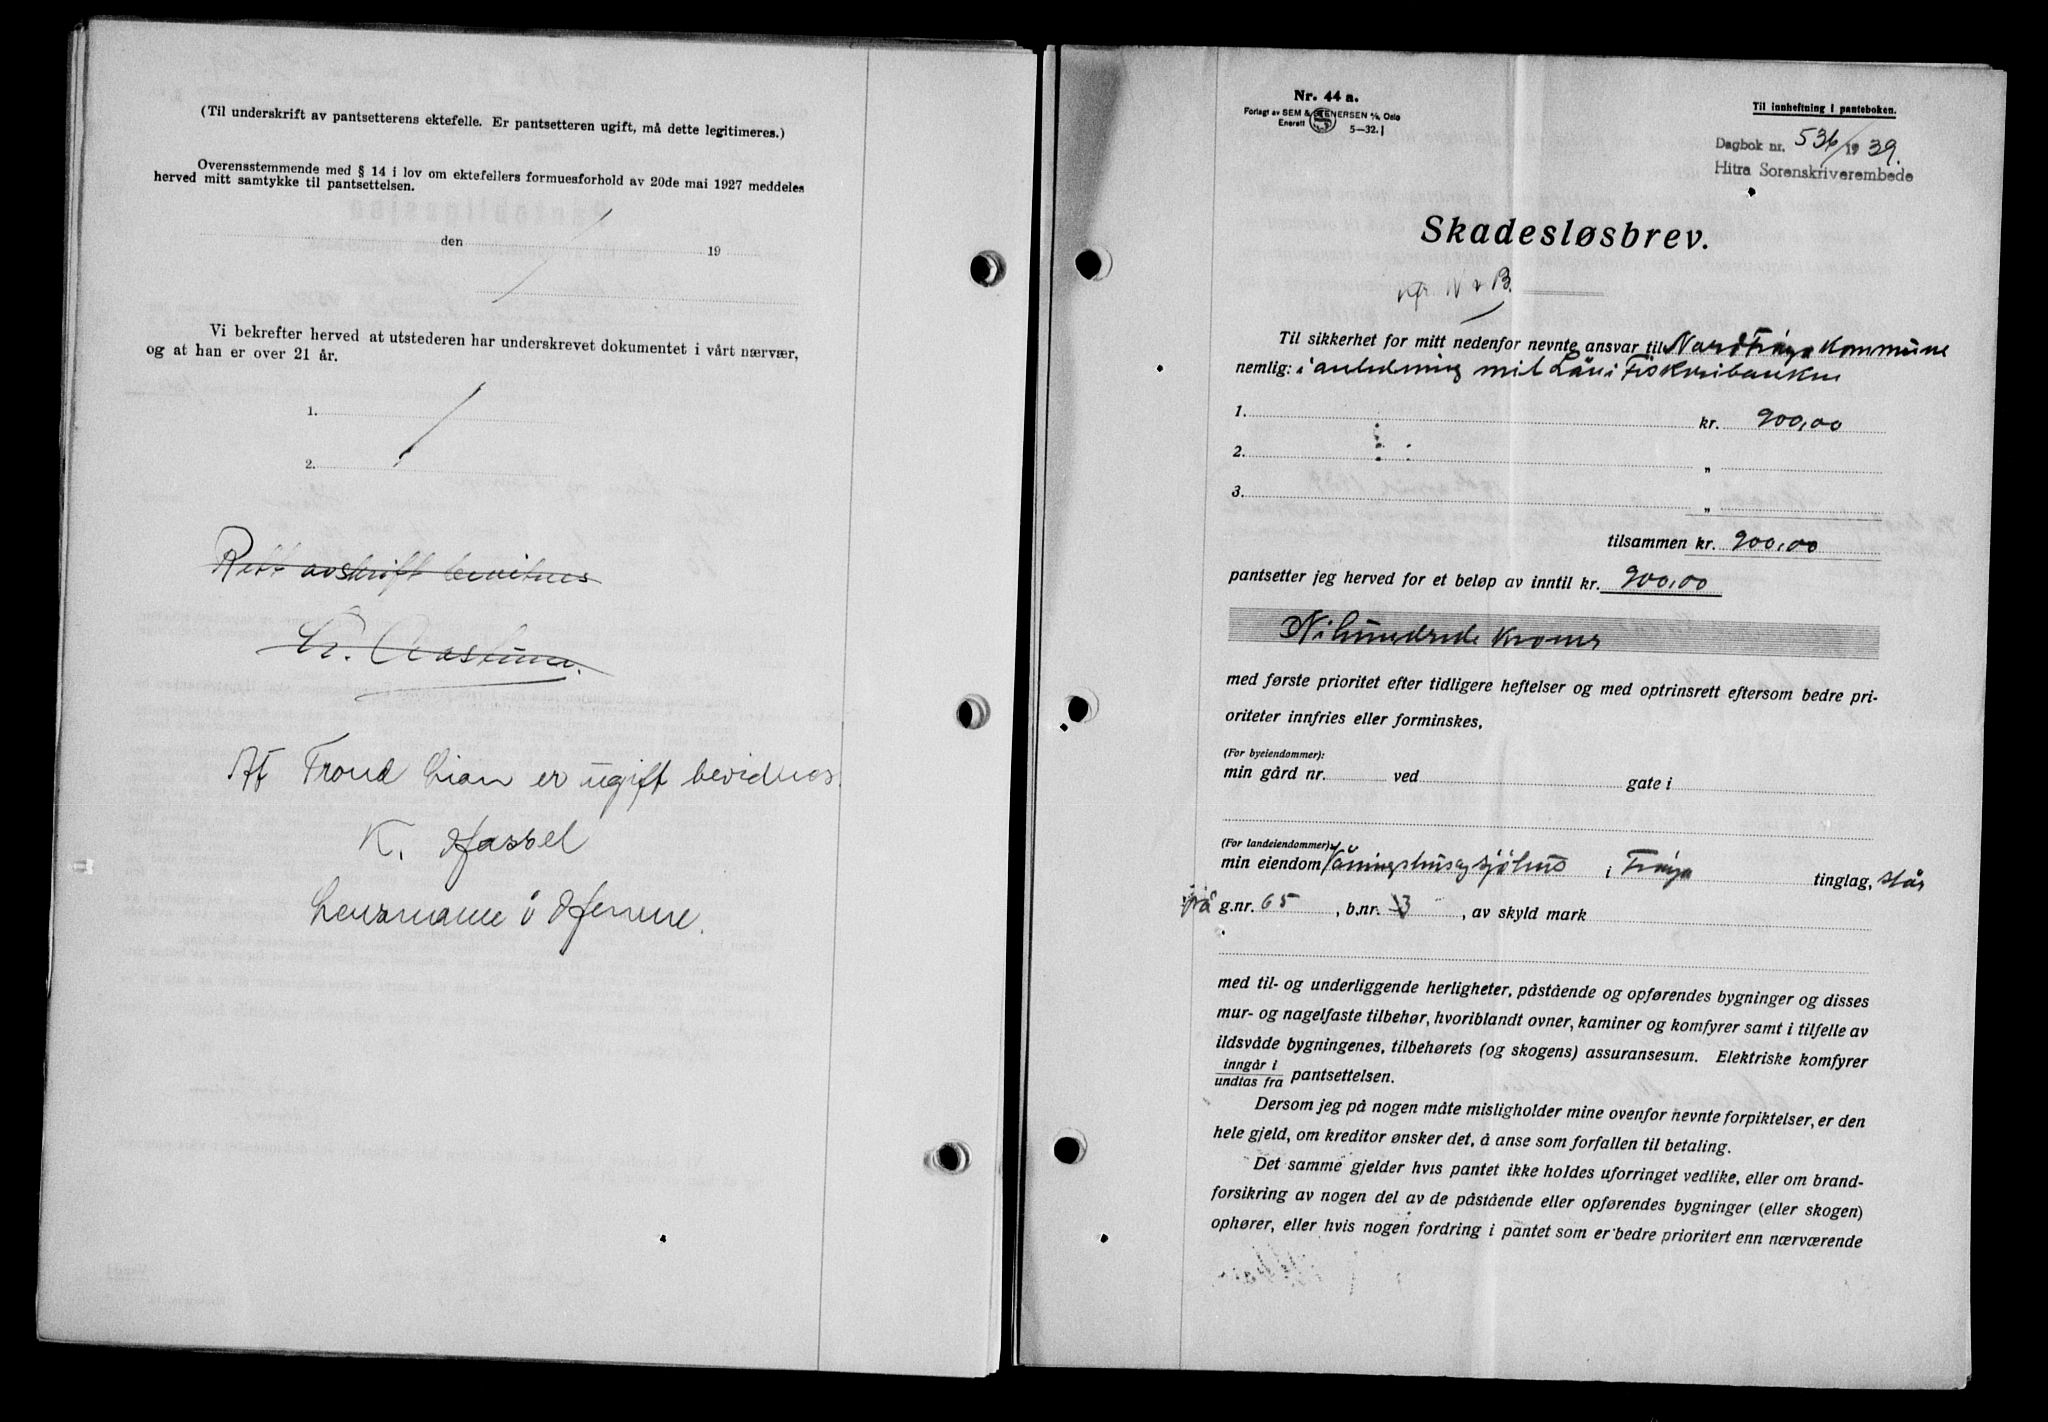 (Til underskrift av pantsetterens ektefelle. Er pantsetteren ugift, må dette legitimeres.)
Overensstemmende med § 14 i lov om ektefellers formuesforhold av 20de mai 1927 meddeles
herved mitt samtykke til pantsettelsen.
den 19
Vi bekrefter herved at utstederen har underskrevet dokumentet i vårt nærvær,
og at han er over 21 år.
1.
2.
Rett avskrift bevitnes
At Trond Lian er ugift bevidnes.
K. Hassel
Lensmann i Hemne.
Nr. 44 a.
Forlagt av SEM & STENERSEN A/S, Oslo
Enerett 5—32.
Til innheftning i panteboken.
Dagbok nr. 536/1939.
Hitra Sorenskriverembede
Skadesløsbrev.
Til sikkerhet for mitt nedenfor nevnte ansvar til Nord Frøya Kommune
nemlig: i anledning mit Lån i Fiskeribanken
1. kr. 900,00
2. „
3. „
tilsammen kr. 900,00
pantsetter jeg herved for et beløp av inntil kr. 900,00
Nihundrede kroner
med første prioritet efter tidligere heftelser og med optrinsrett eftersom bedre pri-
oriteter innfries eller forminskes,
(For byeiendommer):
min gård nr. ved gate i
(For landeiendommer):
min eiendom Våningshus og sjøhus i Frøya tinglag, står
på g.nr. 65, b.nr. 3, av skyld mark
med til- og underliggende herligheter, påstående og opførendes bygninger og disses
mur- og nagelfaste tilbehør, hvoriblandt ovner, kaminer og komfyrer samt i tilfelle av
ildsvåde bygningenes, tilbehørets (og skogens) assuransesum. Elektriske komfyrer
inngår i
undtas fra pantsettelsen.
Dersom jeg på nogen måte misligholder mine ovenfor nevnte forpiktelser, er den
hele gjeld, om kreditor ønsker det, å anse som forfallen til betaling.
Det samme gjelder hvis pantet ikke holdes uforringet vedlike, eller om brand-
forsikring av nogen del av de påstående eller opførendes bygninger (eller skogen)
ophører, eller hvis nogen fordring i pantet som er bedre prioritert enn nærværende